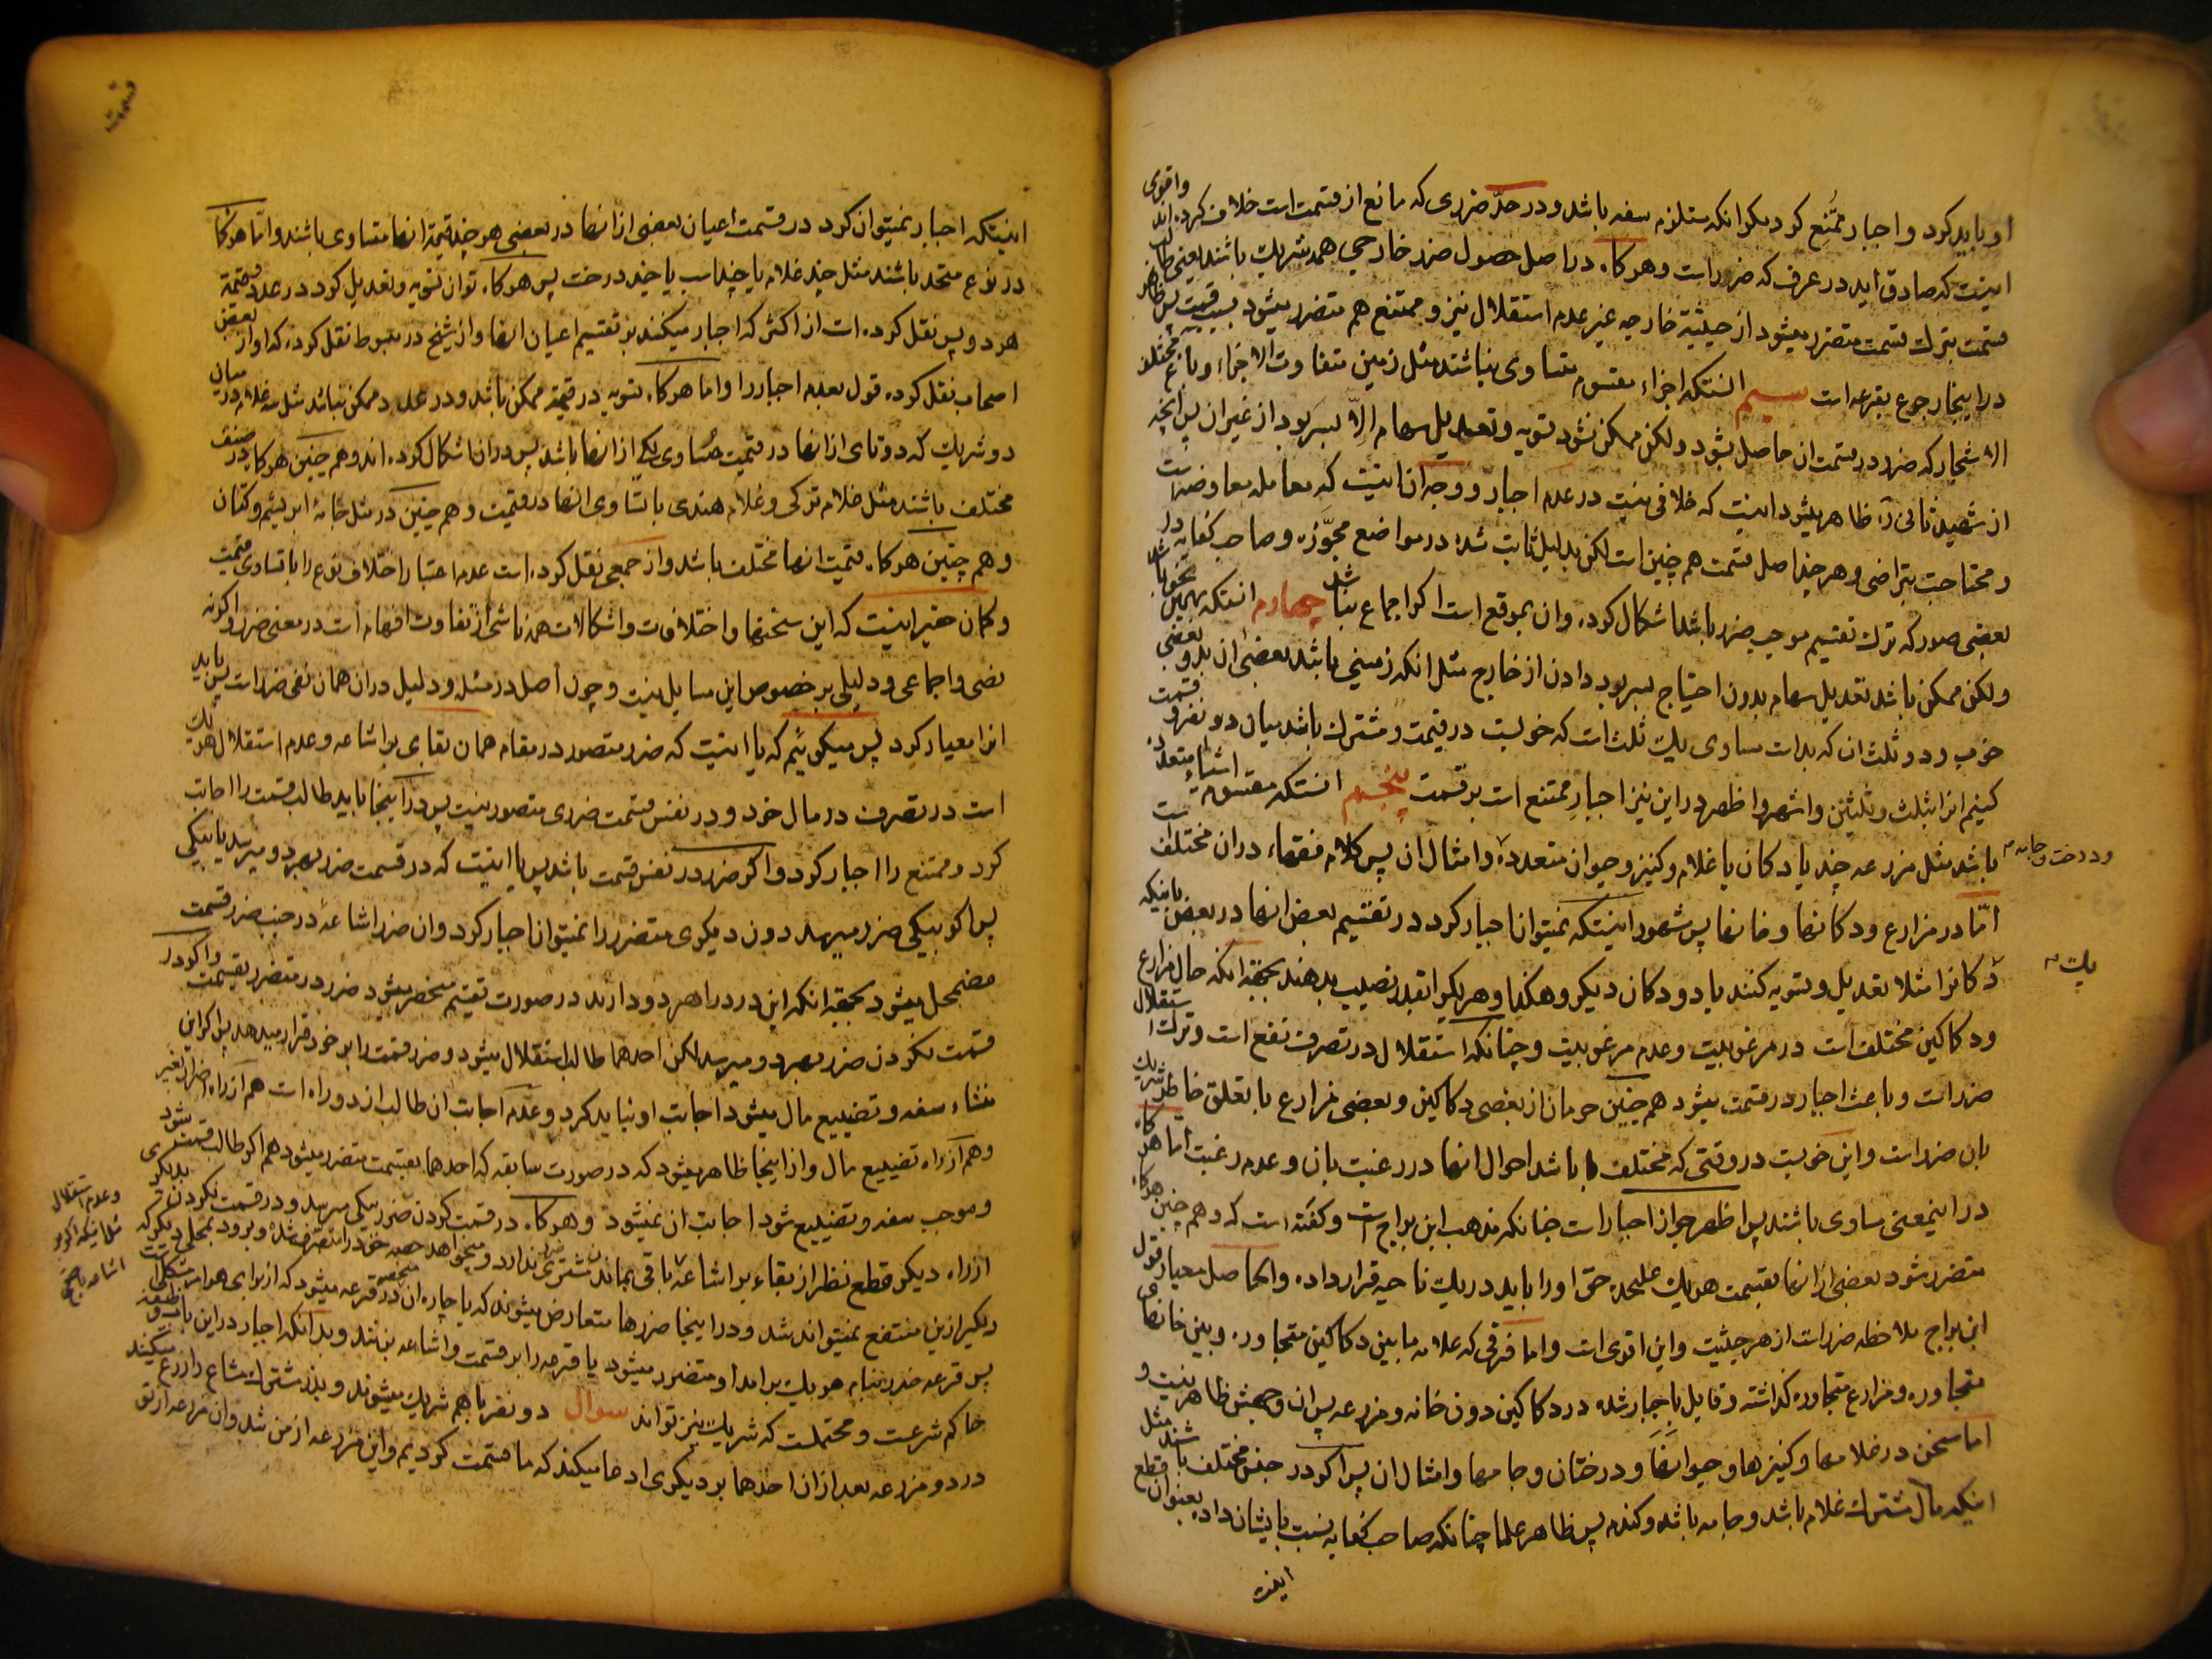 او باید کرد و اجبار ممتنع کرد مگر آنکه مستلزم سفه باشد و در حدّ ضرری که مانع از قسمت است خلاف کرده‌اند و اقوی
اینست که صادق آید در عرف که ضرر است و هرگاه در اصل حصول ضرر خارجی همه شریک باشند یعنی طالب
قسمت بترک قسمت متضرر میشود از حیثیة خارجیه غیر عدم استقلال نیز و ممتنع هم متضرر میشود بسبب قسمت پس ظاهر
در اینجا رجوع بقرعه است سیم آنستکه اجزاء مقسوم متساوی نباشند مثل زمین متفاوت الاجزاء و باغ مختلف
الاشجار که ضرر در قسمت آن حاصل نشود ولکن ممکن نشود تسویه و تعدیل سهام الّا بسر بود از غیر آن پس آنچه
از شهید ثانی ره ظاهر میشود اینست که خلافی نیست در عدم اجبار و وجه آن اینست که معامله معاوضه است
و محتاجست بتراضی و هر چند اصل قسمت هم چنین است لکن بدلیل ثابت شده در مواضع مجوّزه و صاحب کفایه در
بعضی صور که ترک تقسیم موجب ضرر باشد اشکال کرده و آن بموقع است اگر اجماع نباشد چهارم آنستکه بهمین نحو باشد
ولکن ممکن باشد تعدیل سهام بدون احتیاج بسر بود دادن از خارج مثل آنکه زمینی باشد بعضی آن بد و بعضی
خوب و دو ثلث آن که بد است مساوی یک ثلث است که خوبست در قیمت و مشترک باشد میان دو نفر و قسمت
کنیم آنرا بثلث و ثلثین و اشهر و اظهر در این نیز اجبار ممتنع است بر قسمت پنجم آنستکه مقسوم اشیاء متعدده
باشد مثل مزرعه چند یا دکان یا غلام و کنیز و حیوان متعدده و امثال آن پس کلام فقهاء در آن مختلف است
و درخت و جامه
امّا در مزارع و دکانها و خانها پس مشهور اینستکه نمیتوان اجبار کرد در تقسیم بعض آنها در بعض باینکه
یک
دکانرا مثلا تعدیل و تسویه کنند با دو دکان دیگر و هکذا و هر یکی را بقدر نصیب بدهند بجهة آنکه حال مزارع
و دکاکین مختلف است در مرغوبیت و عدم مرغوبیت و چنانکه استقلال در تصرف نفع است و ترک استقلال
ضرر است و باعث اجبار در قسمت میشود هم چنین حرمان از بعضی دکاکین و بعضی مزارع با تعلق خاطر شریک
بآن ضرر است و این خوبست در وقتی که مختلف باشد احوال آنها در رغبت بآن و عدم رغبت امّا هرگاه
در اینمعنی مساوی باشند پس اظهر جواز اجبار است چنانکه مذهب ابن براج است و گفته است که و هم چنین هرگاه
متضرر شود بعضی از آنها بقسمت هر یک علیحده حق او را باید در یک ناحیه قرار داده و الحاصل معیار قول
ابن براج ملاحظه ضرر است از هر حیثیت و این اقوی است و اما فرقی که علامه مابین دکاکین متجاوره و بین خانهای
متجاوره و مزارع متجاوره گذاشته و قایل باجبار شده در دکاکین دون خانه و مزرعه پس آن وجهش ظاهر نیست و
اما سخن در غلامها و کنیزها و حیوانها و درختان و جامها و امثال آن پس اگر در جنس مختلف باشند مثل
اینکه مال مشترک غلام باشد و جامه باشد و گندم پس ظاهر علما چنانکه صاحب کفایه نسبت بایشان داده بعنوان قطع
اینست
قسمت
اینستکه اجبار نمیتوان کرد در قسمت اعیان بعضی از آنها در بعضی هر چند قیمة آنها متساوی باشند و امّا هرگاه
در نوع متحد باشند مثل چند غلام یا چند اسب یا چند درخت پس هرگاه توان تسویه و تعدیل کرد در عدد و قیمة
هر دو پس نقل کرده است از اکثر که اجبار میکنند بر تقسیم اعیان آنها و از شیخ در مبسوط نقل کرده که او از بعض
اصحاب نقل کرده قول بعدم اجبار را و اما هرگاه تسویه در قیمة ممکن باشد و در عدد ممکن نباشد مثل سه غلام در میان
دو شریک که دوتای از آنها در قیمت مساوی یکی از آنها باشد پس در آن اشکال کرده‌اند و هم چنین هرگاه در صنف
مختلف باشند مثل غلام ترکی و غلام هندی با تساوی آنها در قیمت و هم چنین در مثل جامهٔ ابریشم و کتان
و هم چنین هرگاه قیمت آنها مختلف باشد و از جمعی نقل کرده است عدم اعتبار اختلاف نوع را با تساوی قیمت
و گمان حقیر اینست که این سخنها و اختلافات و اشکالات همه ناشی از تفاوت افهام است در معنی ضرر و اگرنه
نصی و اجماعی و دلیلی بر خصوص این مسایل نیست و چون اصل در مسئله و دلیل در آن همان نفی ضرر است پس باید
آنرا معیار کرد پس میگوئیم که یا اینست که ضرر متصور در مقام همان بقای بر اشاعه و عدم استقلال هر یک
است در تصرف در مال خود و در نفس قسمت ضرری متصور نیست پس در اینجا باید طالب قسمت را اجابت
کرد و ممتنع را اجبار کرد و اگر ضرر در نفس قسمت باشد پس یا اینست که در قسمت ضرر بهر دو میرسد یا بیکی
پس اگر بیکی ضرر میرسد دون دیگری متضرر را نمیتوان اجبار کرد و آن ضرر اشاعه در جنب ضرر قسمت
مضمحل میشود بجهة آنکه این درد را هر دو دارند در صورت تقسیم منحصر میشود ضرر در متضرر بقسمت و اگر در
قسمت نکردن ضرر بهر دو میرسد لکن احدهما طالب استقلال میشود و ضرر قسمت را بر خود قرار میدهد پس اگر این
منشاء سفه و تضییع مال میشود اجابت او نباید کرد و عدم اجابت آن طالب از دو راه است هم از راه اضرار بغیر
و هم از راه تضییع مال و از اینجا ظاهر میشود که در صورت سابقه که احدهما بقسمت متضرر میشود هم اگر طالب قسمت شود
و موجب سفه و تضییع شود اجابت آن نمیشود و هرگاه در قسمت کردن ضرر بیکی میرسد و در قسمت نکردن بدیگری
و عدم استقلال
مثل اینکه اگر بر
اشاعه باقی
از راه دیگر قطع نظر از بقاء بر اشاعه باقی بماند مشتری ندارد و میخواهد حصه خود را بفروشد و برود بمحلی دیگر که
دیگر از این منتفع نمیتواند شد و در اینجا ضررها متعارض میشوند که یا چاره آن در قرعه میشود
پس قرعه ضرر بنام هر یک برآمد او متضرر میشود یا قرعه را بر قسمت و اشاعه بزنند و بدانکه اجبار در این
حاکم شرعست و محتملست که شریک نیز تواند سوال دو نفر با هم شریک میشوند و بذر مشترک مشاع را زرع میکنند
در دو مزرعه بعد از آن احدهما بر دیگری ادعا میکند که ما قسمت کردیم و این مزرعه از من شد و آن مزرعه از تو